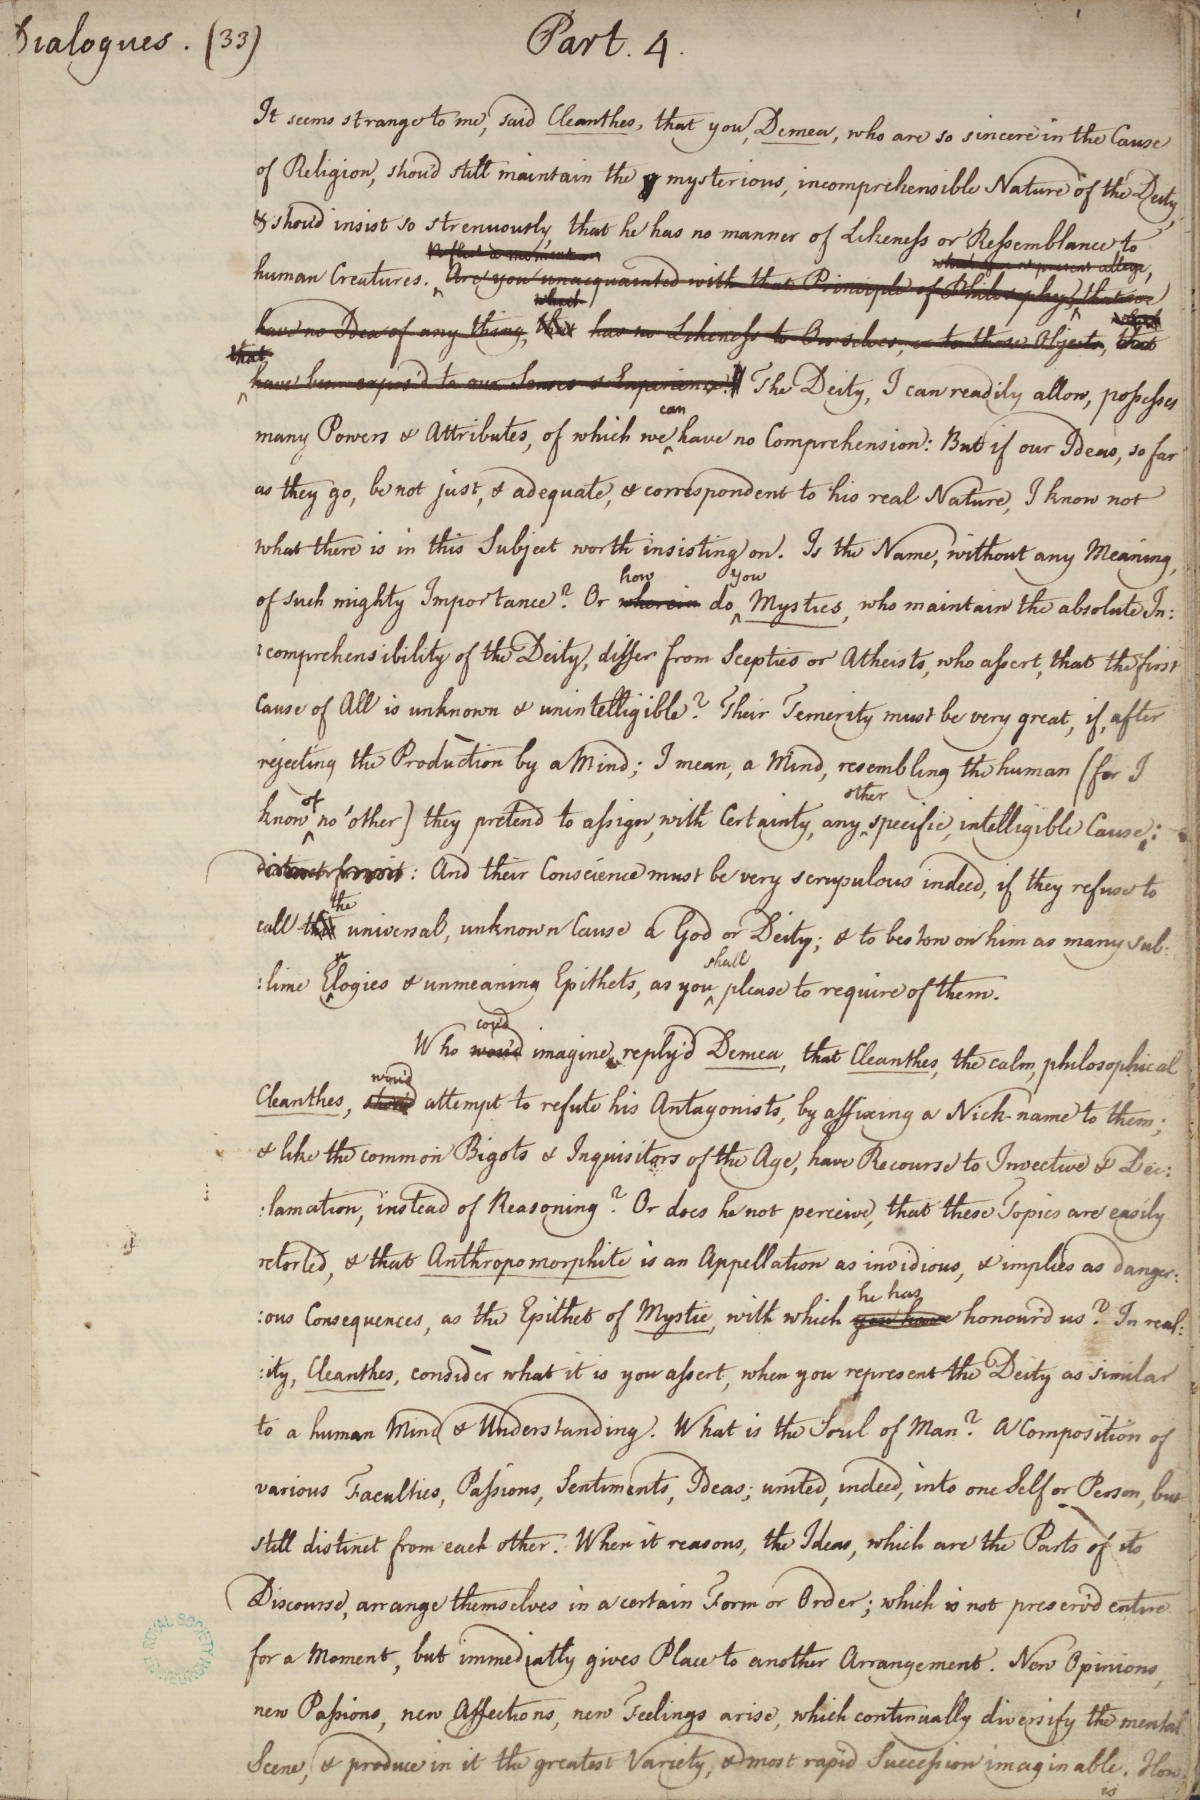 Dialogues. (33)
Part. 4.
It seems strange to me, said Cleanthes, that you, Demea, who are so sincere in the Cause
of Religion, shou'd still maintain the mysterious, incomprehensible Nature of the Deity,
& shou'd insist so strenuously, that he has no manner of Likeness or Ressemblance to
human Creatures. Are you unacquainted with that Principle of Philosophy, that we
have no Idea of any thing, which has no Likeness to Ourselves, or to those Objects,
that have been expos'd to our Senses & Experience. The Deity, I can readily allow, possesses
can
many Powers & Attributes, of which we have no Comprehension: But if our Ideas, so far
as they go, be not just, & adequate, & correspondent to his real Nature, I know not
what there is in this Subject worth insisting on. Is the Name, without any Meaning,
how you
of such mighty Importance? Or wherein do Mystics, who maintain the absolute In:
:comprehensibility of the Deity, differ from Sceptics or Atheists, who assert, that the first
Cause of All is unknown & unintelligible? Their Temerity must be very great, if, after
rejecting the Production by a Mind; I mean, a Mind, resembling the human (for I
of other
know no other) they pretend to assign, with Certainty, any specific, intelligible Cause:
: And their Conscience must be very scrupulous indeed, if they refuse to
the
call universal, unknown Cause a God or Deity; & to bestow on him as many sub:
shall
:lime Elogies & unmeaning Epithets, as you please to require of them.
cou'd
Who wou'd imagine, reply'd Demea, that Cleanthes, the calm, philosophical
wou'd
Cleanthes, shou'd attempt to refute his Antagonists, by affixing a Nick-name to them;
& like the common Bigots & Inquisitors of the Age, have Recourse to Invective & Dec:
:lamation, instead of Reasoning? Or does he not perceive, that these Topics are easily
retorted, & that Anthropomorphite is an Appellation as invidious, & implies as danger:
he has
:ous Consequences, as the Epithet of Mystic, with which you have honour'd us? In real:
:ity, Cleanthes, consider what it is you assert, when you represent the Deity as similar
to a human Mind & Understanding. What is the Soul of Man? A Composition of
various Faculties, Passions, Sentiments, Ideas; united, indeed, into one Self or Person, but
still distinct from each other. When it reasons, the Ideas, which are the Parts of its
Discourse, arrange themselves in a certain Form or Order; which is not preserv'd entire
for a Moment, but immediatly gives Place to another Arrangement. New Opinions,
new Passions, new Affections, new Feelings arise, which continually diversify the mental
Scene, & produce in it the greatest Variety, & most rapid Succession imaginable. How
is